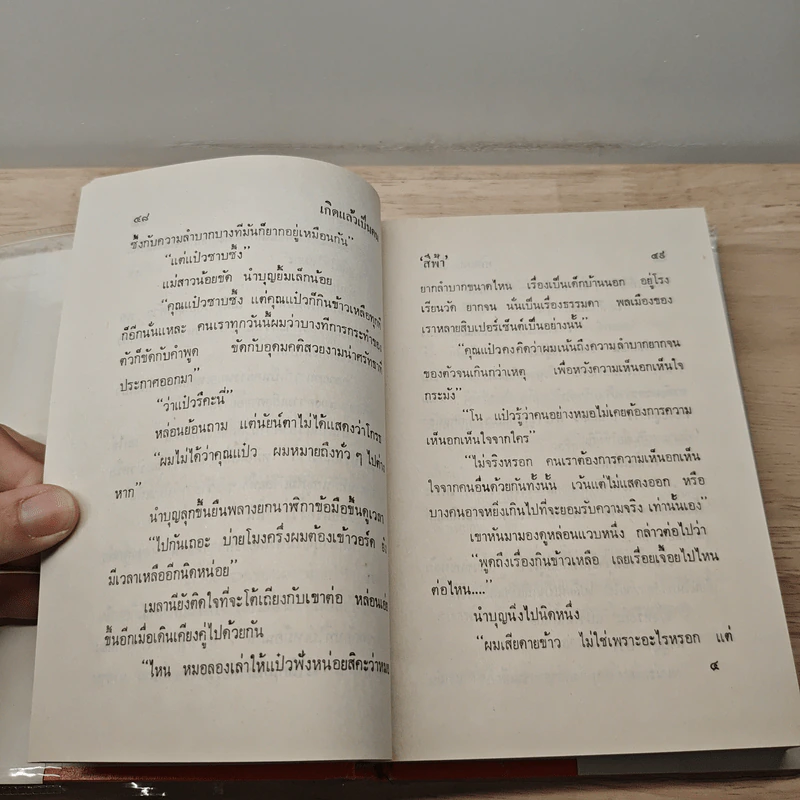 ๔๘
เกิดแล้วเป็นคน
ซึ้งกับความลำบากบางทีมันก็ยากอยู่เหมือนกัน”
“แต่แป๋วซาบซึ้ง”
แม่สาวน้อยขัด นำบุญยิ้มเล็กน้อย
“คุณแป๋วซาบซึ้ง แต่คุณแป๋วก็กินข้าวเหลือทุกที
ก็อีกนั่นแหละ คนเราทุกวันนี้ผมว่าบางทีการกระทำของ
ตัวก็ขัดกับคำพูด ขัดกับอุดมคติสวยงามน่าศรัทธาที่
ประกาศออกมา”
“ว่าแป๋วรึคะนี่”
หล่อนย้อนถาม แต่นัยน์ตาไม่ได้แสดงว่าโกรธ
“ผมไม่ได้ว่าคุณแป๋ว ผมหมายถึงทั่ว ๆ ไปต่าง
หาก”
นำบุญลุกขึ้นยืนพลางยกนาฬิกาข้อมือขึ้นดูเวลา
“ไปกันเถอะ บ่ายโมงครึ่งผมต้องเข้าวอร์ด ยัง
มีเวลาเหลืออีกนิดหน่อย”
เมลานียังติดใจที่จะโต้เถียงกับเขาต่อ หล่อนเอ่ย
ขึ้นอีกเมื่อเดินเคียงคู่ไปด้วยกัน
“ไหน หมอลองเล่าให้แป๋วฟังหน่อยสิคะว่าหมอ
‘สีฟ้า’
๔๙
ยากลำบากขนาดไหน เรื่องเป็นเด็กบ้านนอก อยู่โรง
เรียนวัด ยากจน นั่นเป็นเรื่องธรรมดา พลเมืองของ
เราหลายสิบเปอร์เซ็นต์เป็นอย่างนั้น”
“คุณแป๋วคงคิดว่าผมเน้นถึงความลำบากยากจน
ของตัวจนเกินกว่าเหตุ เพื่อหวังความเห็นอกเห็นใจ
กระมัง”
“โน แป๋วรู้ว่าคนอย่างหมอไม่เคยต้องการความ
เห็นอกเห็นใจจากใคร”
“ไม่จริงหรอก คนเราต้องการความเห็นอกเห็น
ใจจากคนอื่นด้วยกันทั้งนั้น เว้นแต่ไม่แสดงออก หรือ
บางคนอาจหยิ่งเกินไปที่จะยอมรับความจริง เท่านั้นเอง”
เขาหันมามองดูหล่อนแวบหนึ่ง กล่าวต่อไปว่า
“พูดถึงเรื่องกินข้าวเหลือ เลยเรื่อยเจื้อยไปไหน
ต่อไหน....”
นำบุญนิ่งไปนิดหนึ่ง
“ผมเสียดายข้าว ไม่ใช่เพราะอะไรหรอก แต่
๔